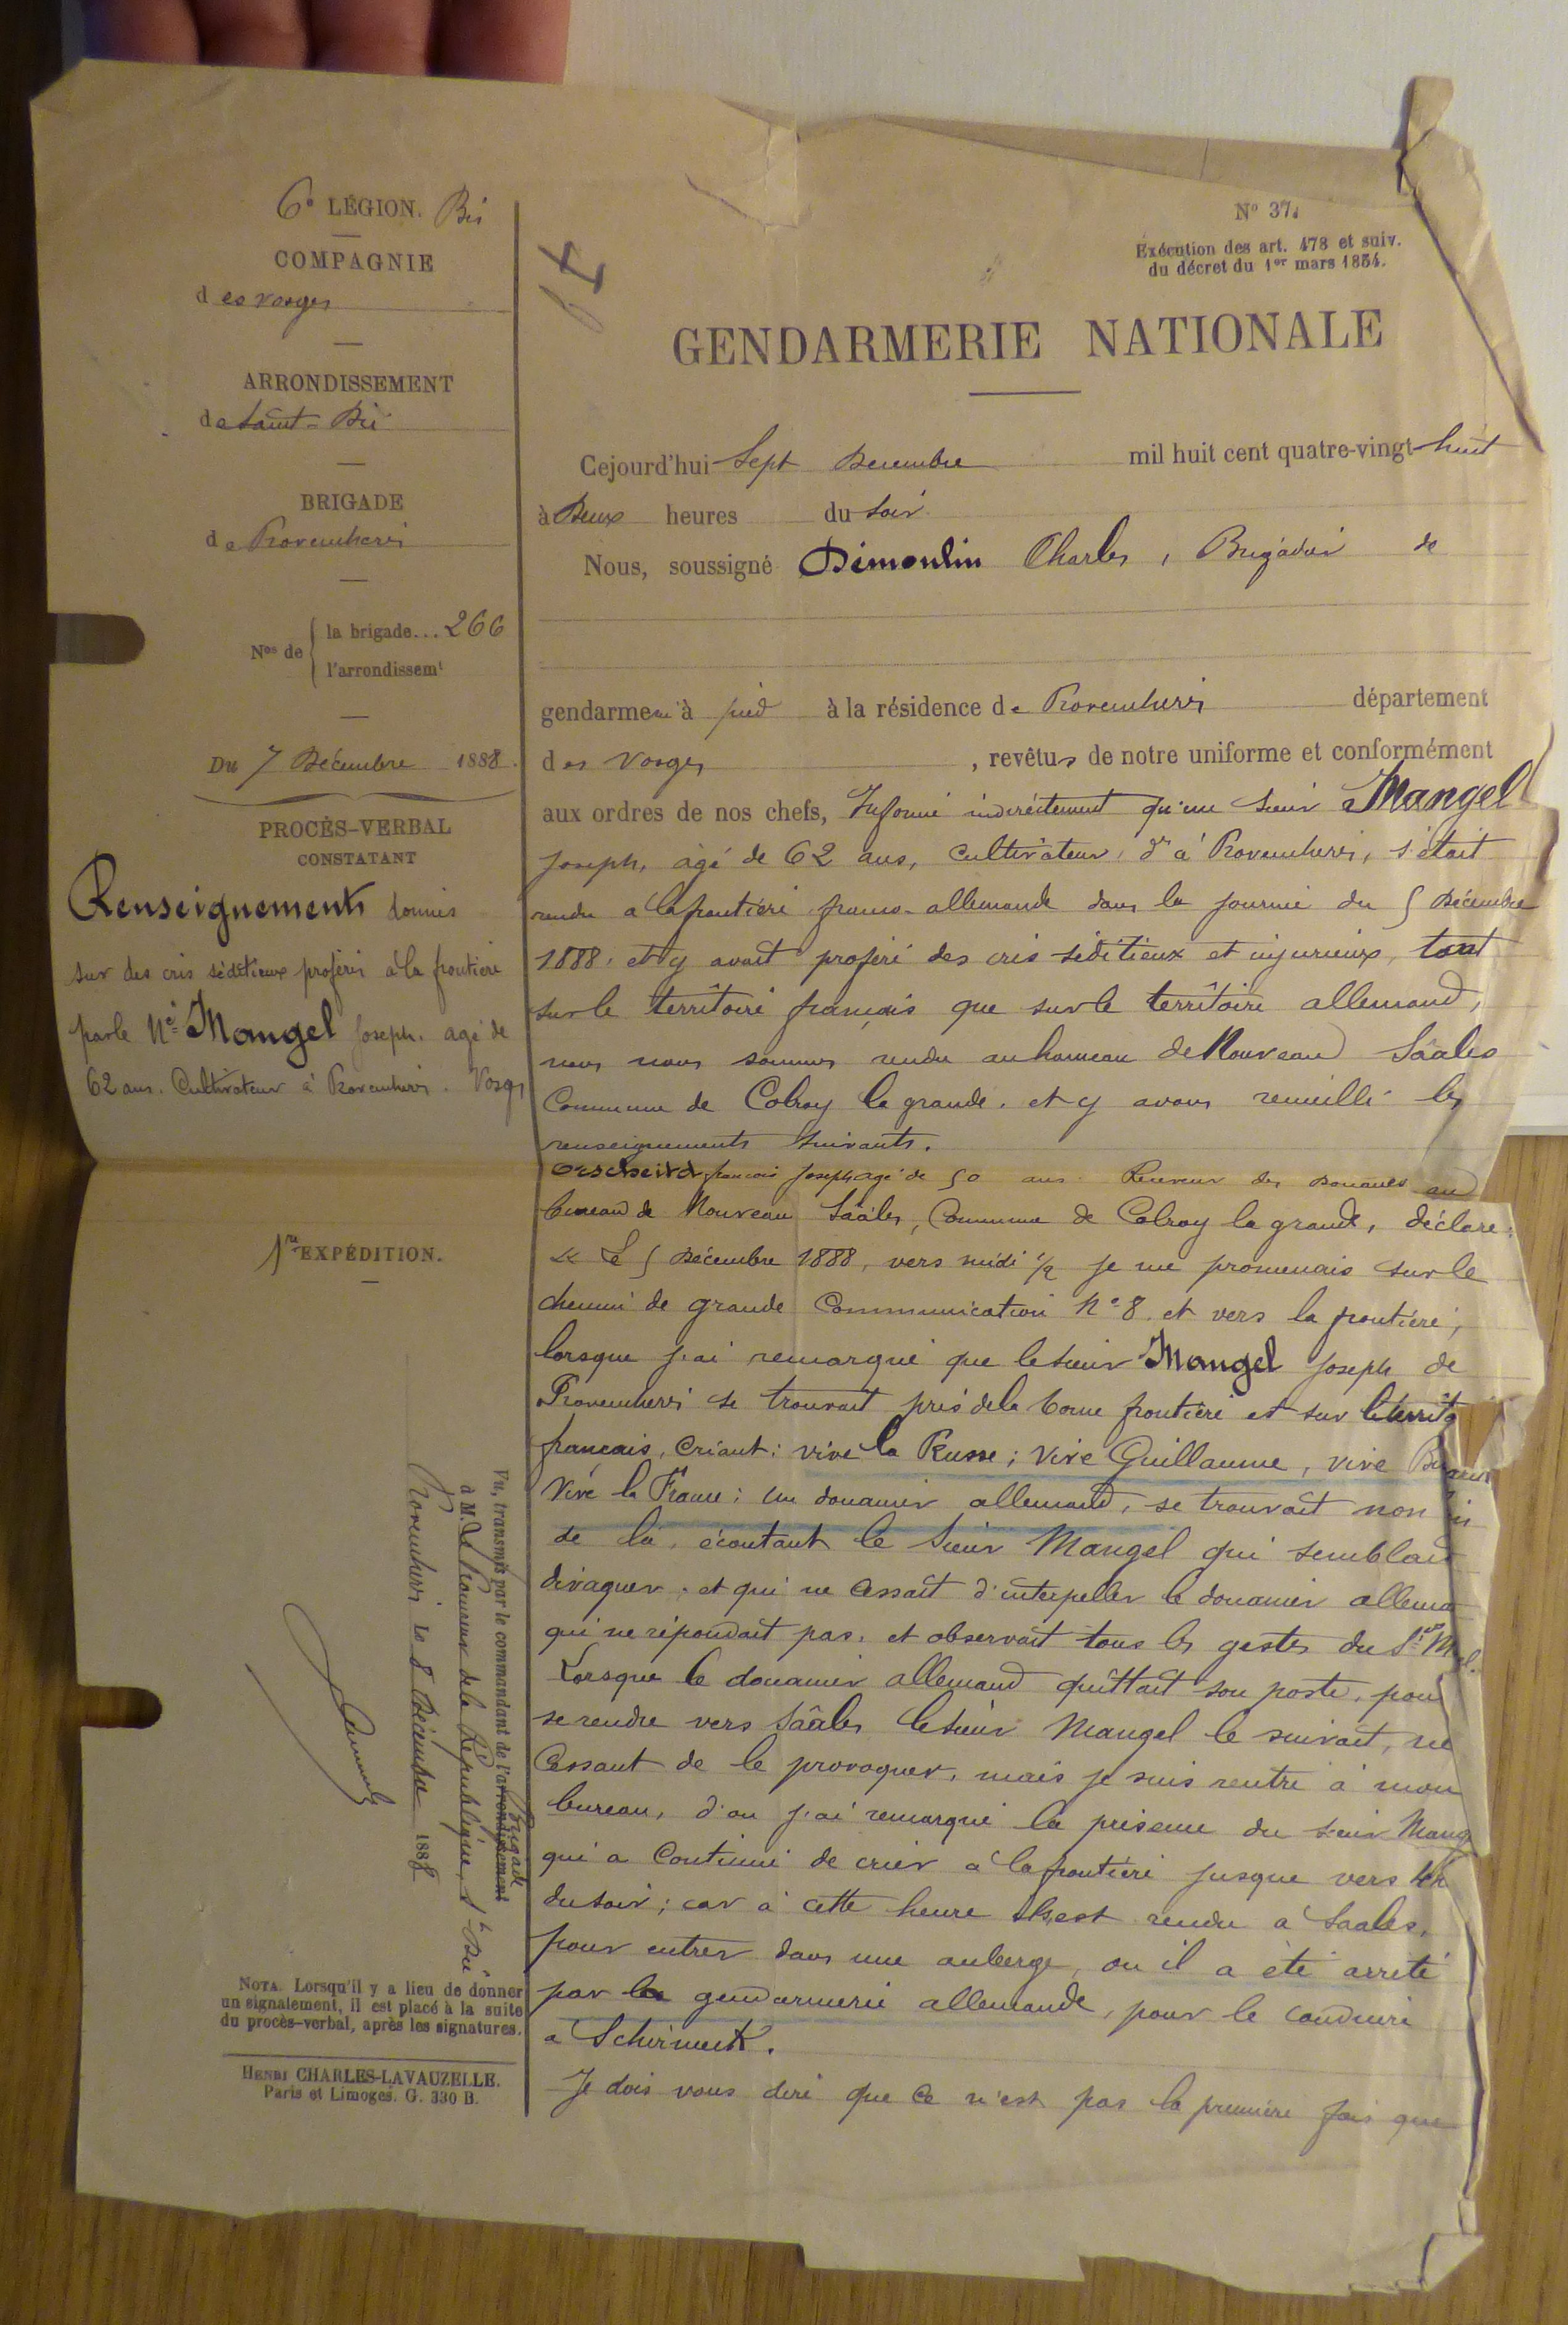 6e LÉGION. Bis
COMPAGNIE
des Vosges
ARRONDISSEMENT
de Saint-Dié
BRIGADE
de Provenchères
Nos de
la brigade... 266
l'arrondissemt
Du 7 Décembre 1888.
PROCÈS-VERBAL
CONSTATANT
Renseignements donnés
sur des cris séditieux proférés à la frontière
par le Né Mangel Joseph. agé de
62 ans. Cultivateur à Provenchères. Vosges
1re EXPÉDITION.
Vu, transmis par le commandant de l'arrondissement brigade
à M. le Procureur de la République, à St Dié
Provenchères le 8 Décembre 1888
NOTA. Lorsqu'il y a lieu de donner
un signalement, il est placé à la suite
du procès-verbal, après les signatures.
HENRI CHARLES-LAVAUZELLE.
Paris et Limoges. G. 330 B.
No 37.
Exécution des art. 478 et suiv.
du décret du 1er mars 1854.
GENDARMERIE NATIONALE
Cejourd'hui Sept Decembre mil huit cent quatre-vingt-huit
à Deux heures du soir
Nous, soussigné Dimoulin Charles, Brigadier de
gendarmerie à pied à la résidence de Provenchères département
des Vosges, revêtus de notre uniforme et conformément
aux ordres de nos chefs, Informé indirectement qu'un sieur Mangel
Joseph, agé de 62 ans, cultivateur, dt à Provenchères, s'était
rendu à la frontière franco-allemande dans la journée du 5 Décembre
1888. et y avait proféré des cris séditieux et injurieux, tant
sur le territoire français que sur le territoire allemand,
nous nous sommes rendu au hameau de Nouveau Sâales
Commune de Colroy la grande. et y avons recueilli les
renseignements suivants.
françois Joseph agé de 50 ans Receveur des Douanes au
bureau de Nouveau Sâales, Commune de Colroy la grande, déclare:
« Le 5 Décembre 1888, vers midi 1/2 je me promenais sur le
chemin de grande Communication No 8. et vers la frontière,
lorsque j'ai remarqué que le sieur Mangel Joseph de
Provenchères se trouvait près de la borne frontière et sur le territo
français, criant: vive la Russe; vive Guillaume, vive
Vive la France; un douanier allemand, se trouvait non
de là, écoutant le sieur Mangel qui semblait
divaguer. et qui ne cessait d'interpeller le douanier allema
qui ne répondait pas. et observait tous les gestes du Sr
Lorsque le douanier allemand quittait son poste, pour
se rendre vers Sâales le sieur Mangel le suivait, ne
Cessant de le provoquer, mais je suis rentré à mon
bureau, d'ou j'ai remarqué la présence du sieur Mang
qui a continué de crier à la frontière jusque vers 4h
du soir; car à cette heure il s'est rendu à Saales,
pour entrer dans une auberge, ou il a été arrêté
par la gendarmerie allemande, pour le conduire
a Schirmeck.
Je dois vous dire que ce n'est pas la première fois que